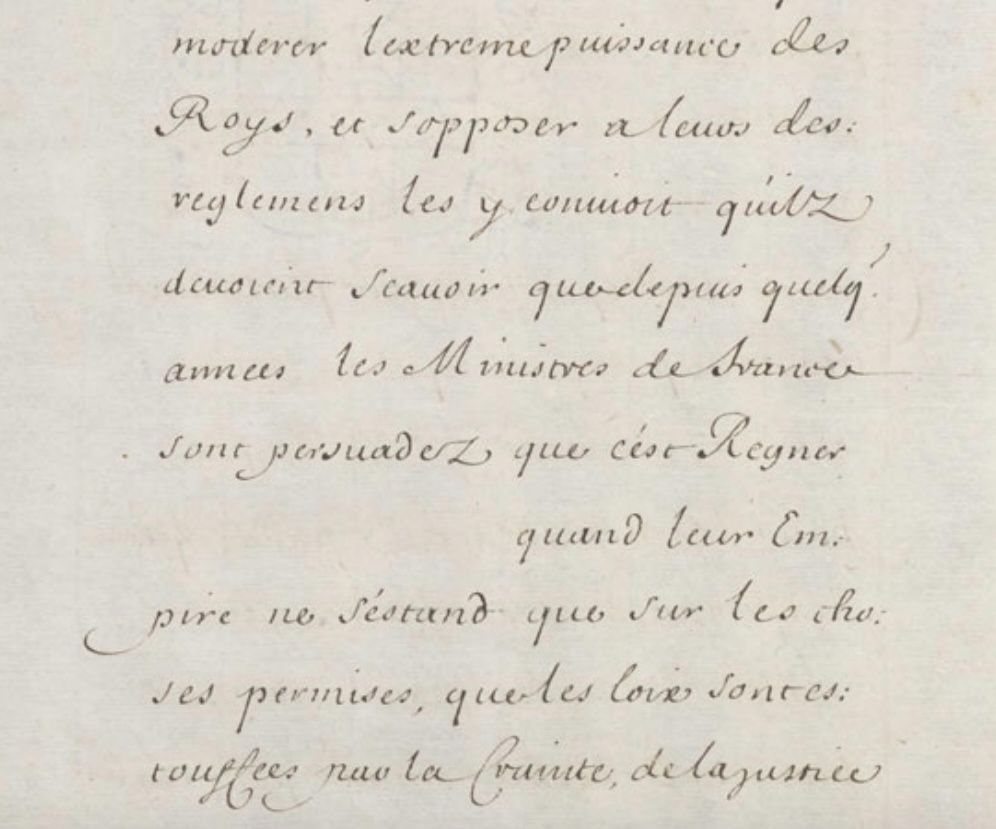 moderer lextreme puissance des
Roys, et sopposer a leurs des:
reglemens les y conuioit qu'ilz
deuoient scauoir que depuis quelq'.
annees les Ministres de france
sont persuadez que cést Regner
quand leur Em:
pire ne séstand que sur les cho:
ses permises, que les loix sont es:
touffees par la Crainte, de la justice